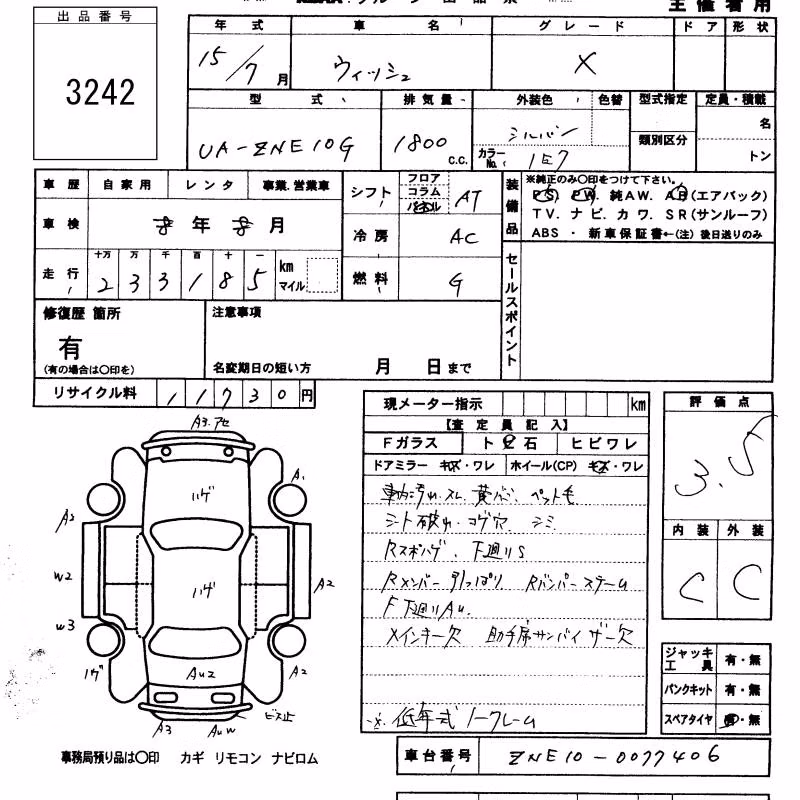 出品番号
3242
主催者用
年式 車名 グレード ドア 形状
15/7月 ウィッシュ X
型式 排気量 外装色 色替 型式指定 定員・積載
UA-ZNE10G 1800 c.c. シルバー 名
カラーNo. 1E7 類別区分 トン
車歴 自家用 レンタ 事業.営業車
シフト フロア コラム パネル AT
装備品
※純正のみ〇印をつけて下さい。
PS. PW. 純AW. AB(エアバック)
TV. ナビ. カワ. SR(サンルーフ)
ABS ・ 新車保証書←(注) 後日送りのみ
車検 年 月
冷房 AC
走行 十万 万 千 百 十 一
233185 km マイル
燃料 G
セールスポイント
修復歴 箇所
有
(有の場合は〇印を)
注意事項
名変期日の短い方 月 日まで
リサイクル料 11730円
現メーター指示 km
【査定員記入】
Fガラス トビ石 ヒビワレ
ドアミラー キズ・ワレ ホイール(CP) キズ・ワレ
車内汚れ.スレ. ペット毛
シート破れ.コゲ穴 シミ
下廻りS
Rメンバー引っぱり Rバンパーステー
F下廻りAu.
メインキー欠 助手席サンバイザー欠
低年式ノークレーム
評価点
3.5
内装 外装
C C
ジャッキ工具 有・無
パンクキット 有・無
スペアタイヤ 有・無
A3.アセ
ハゲ
A1
A3
W2
ハゲ
A2
W3
ハゲ
AU2
A2
ビス止
A3
AUW
事務局預り品は〇印 カギ リモコン ナビロム
車台番号 ZNE10-0077406